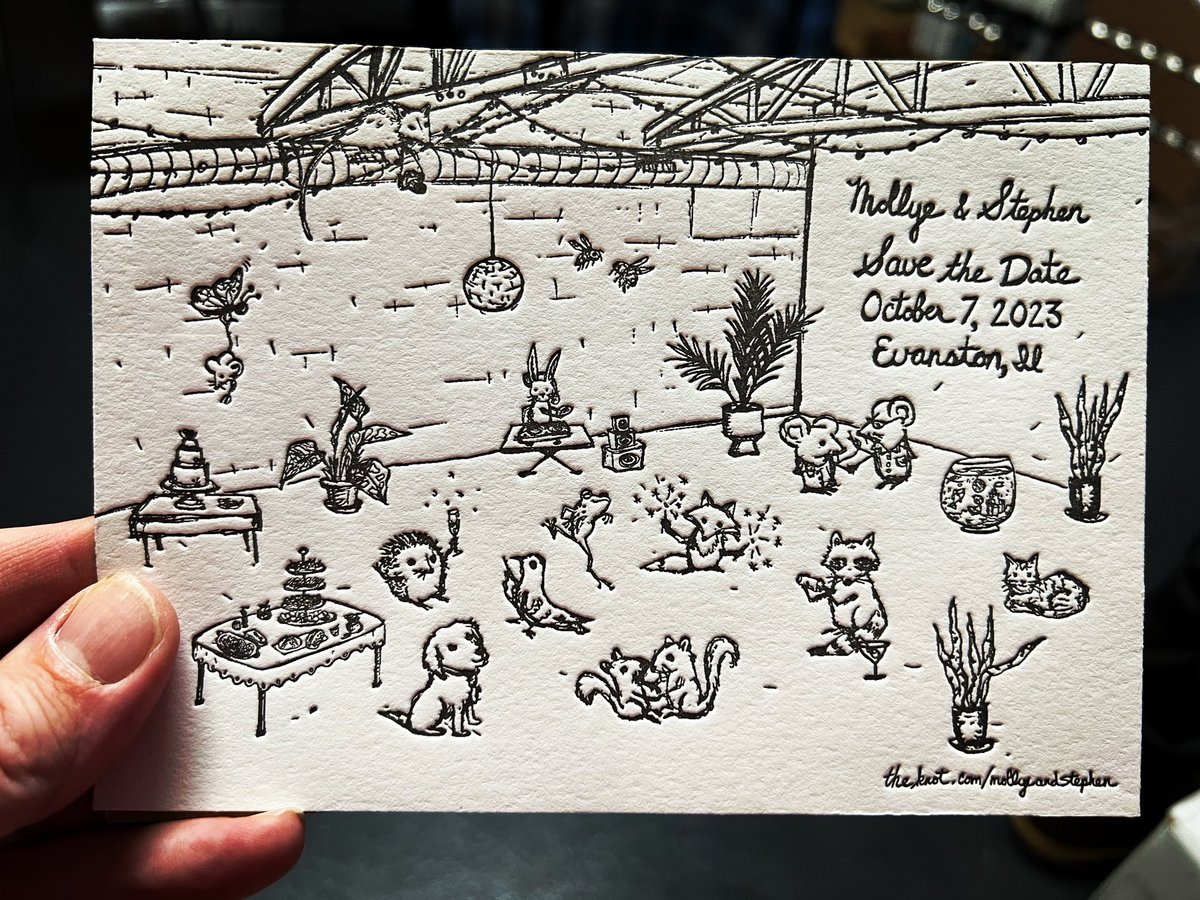 Mollye & Stephen
Save the Date
October 7, 2023
Evanston, Il
the.knot.com/mollyeandstephen